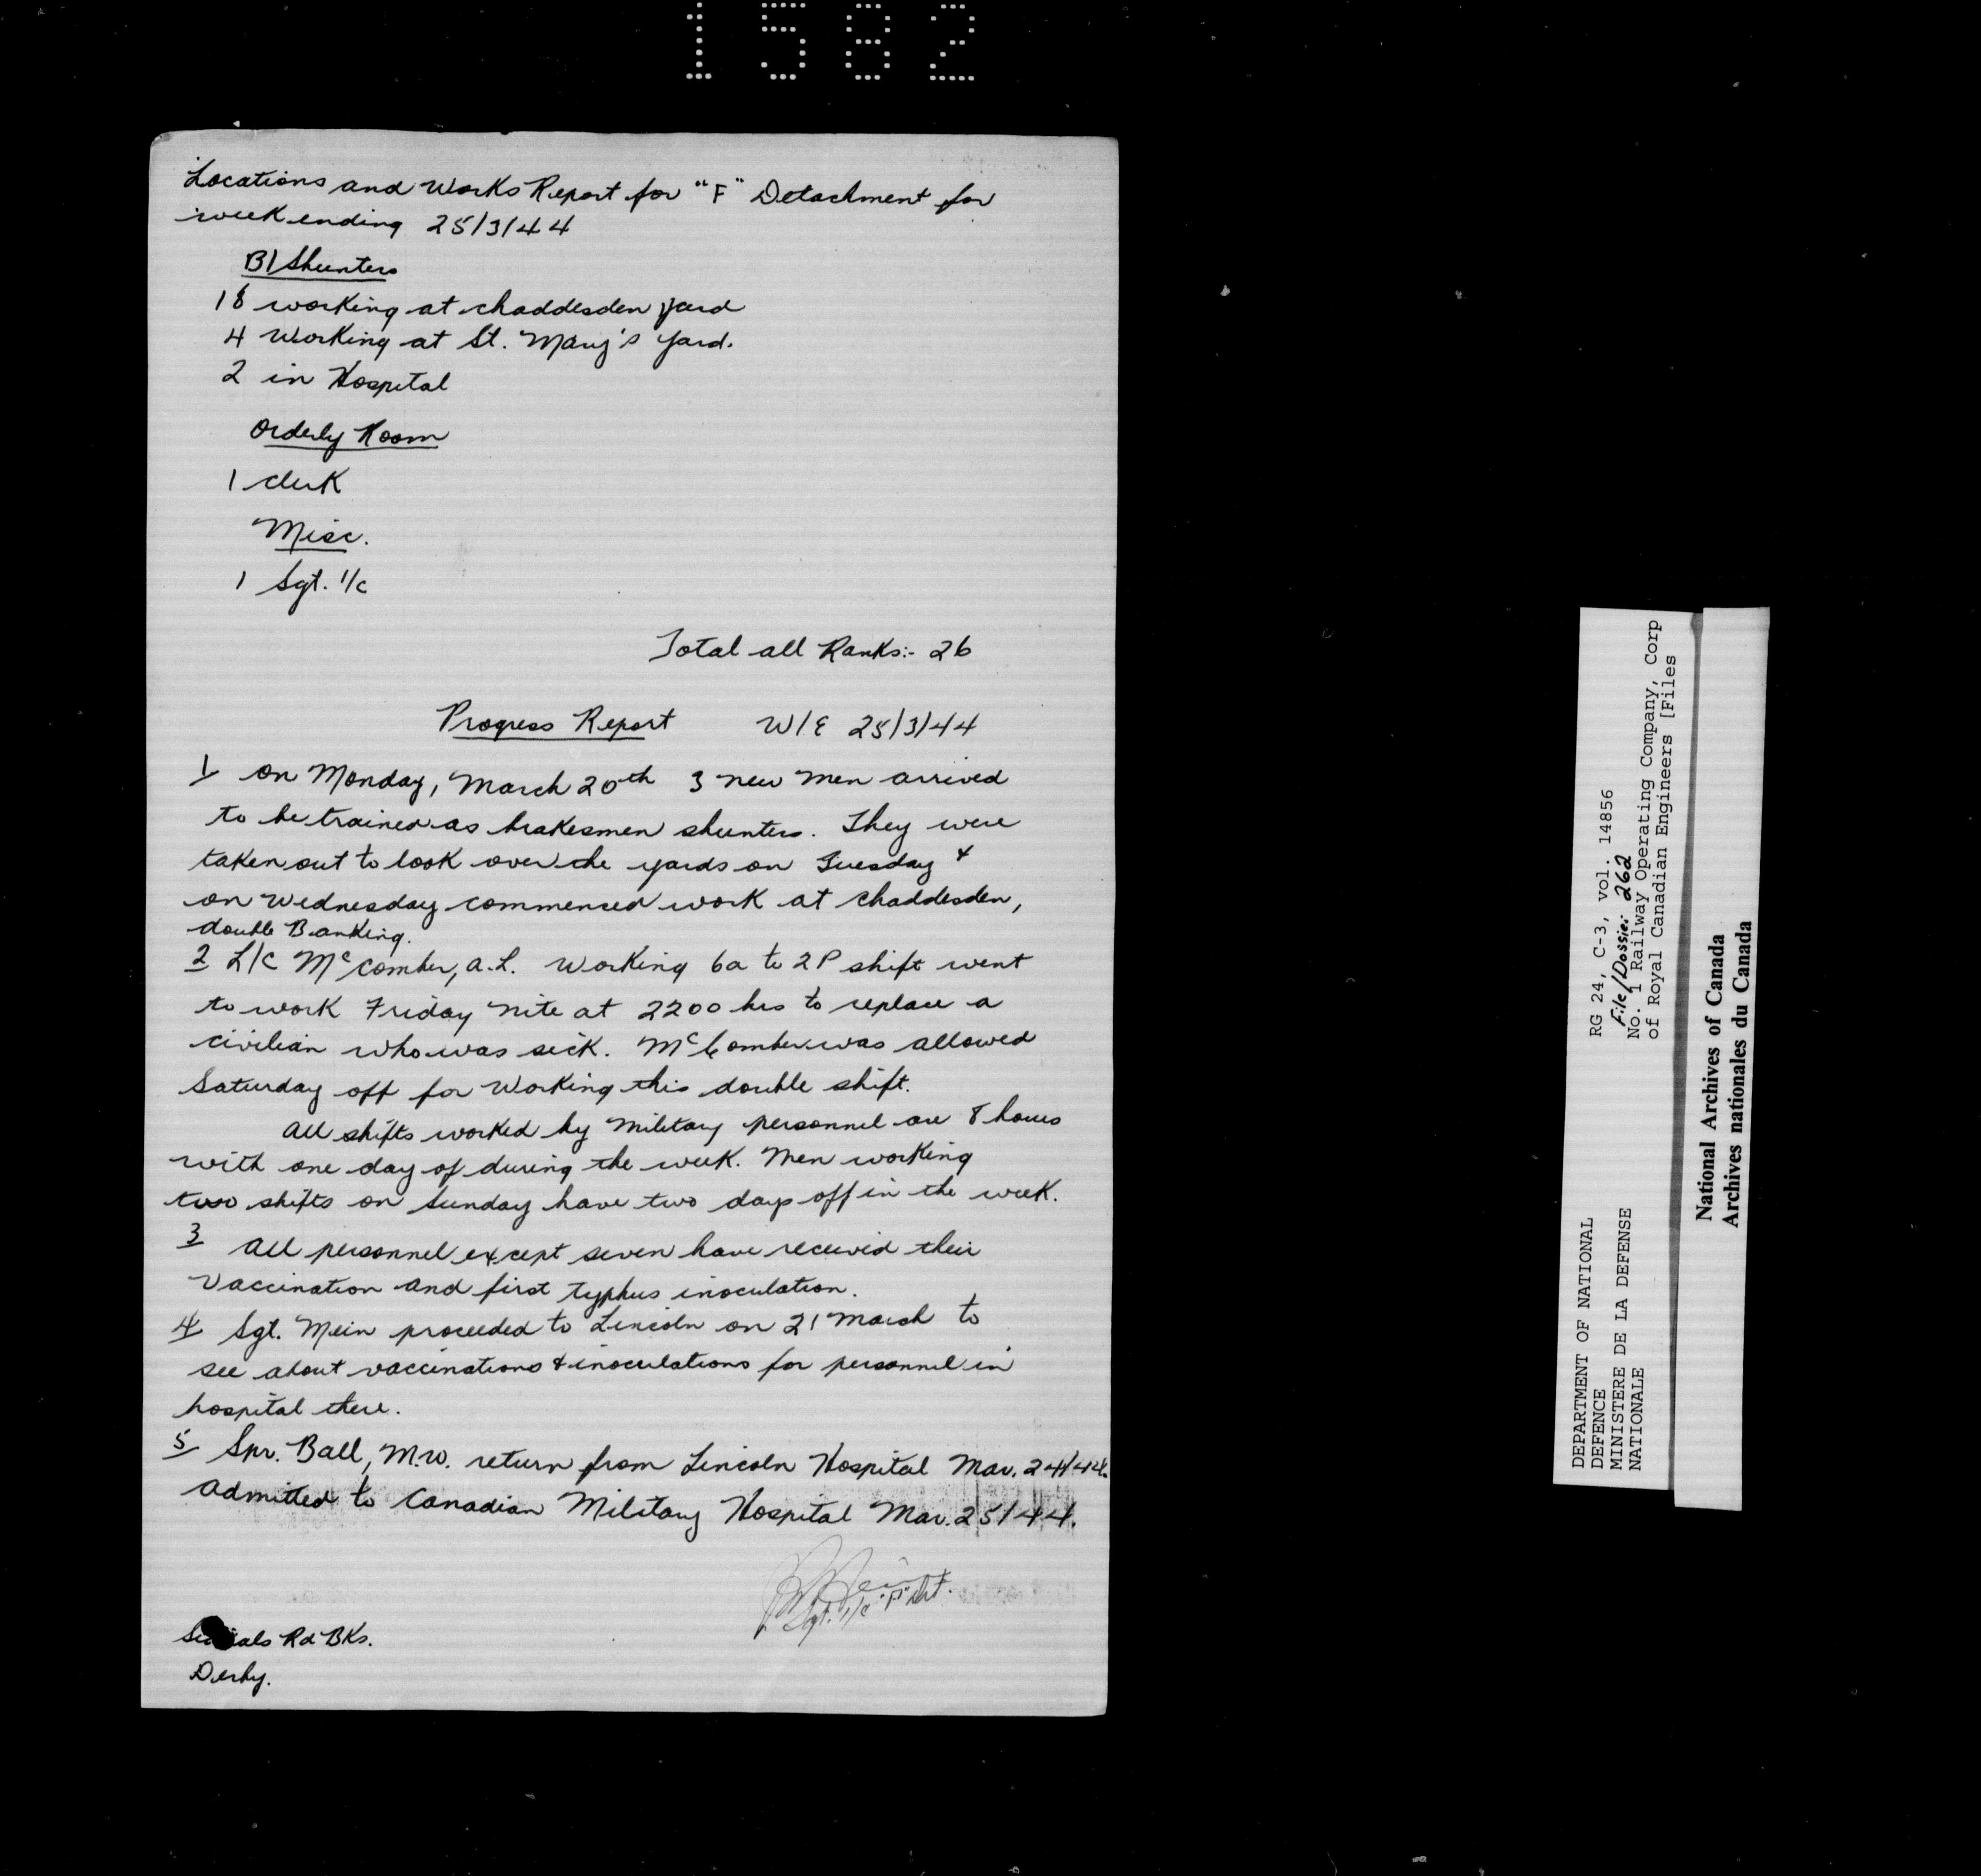 1582
Locations and Works Report for "F" Detachment for
week ending 25/3/44
B/Shunters
18 working at chaddesden yard
4 Working at St. Mary's yard.
2 in Hospital
Orderly Room
1 clerk
Misc.
1 Sgt. I/c
Total all Ranks:- 26
Progress Report W/E 25/3/44
1/ on Monday, March 20th 3 new men arrived
to be trained as brakesmen shunters. They were
taken out to look over the yards on Tuesday &
on Wednesday commenced work at Chaddesden,
double Banking.
2 L/C McComber, A.L. Working 6a to 2P shift went
to work Friday nite at 2200 hrs to replace a
civilian who was sick. McComber was allowed
Saturday off for Working this double shift.
All shifts worked by military personnel are 8 hours
with one day of during the week. Men working
two shifts on Sunday have two days off in the week.
3 All personnel except seven have received their
Vaccination and first typhus inoculation.
4/ Sgt. Mein proceeded to Lincoln on 21 March to
see about vaccinations & inoculations for personnel in
hospital there.
5/ Spr. Ball, M.W. return from Lincoln Hospital Mar. 24/44.
Admitted to Canadian Military Hospital Mar. 25/44.
Sgt. I/c "F" Det.
Rd BKs.
Derby.
DEPARTMENT OF NATIONAL
DEFENCE
MINISTERE DE LA DEFENSE
NATIONALE
RG 24, C-3, vol. 14856
File/Dossier 262
No. 1 Railway Operating Company, Corp
of Royal Canadian Engineers [Files
National Archives of Canada
Archives nationales du Canada